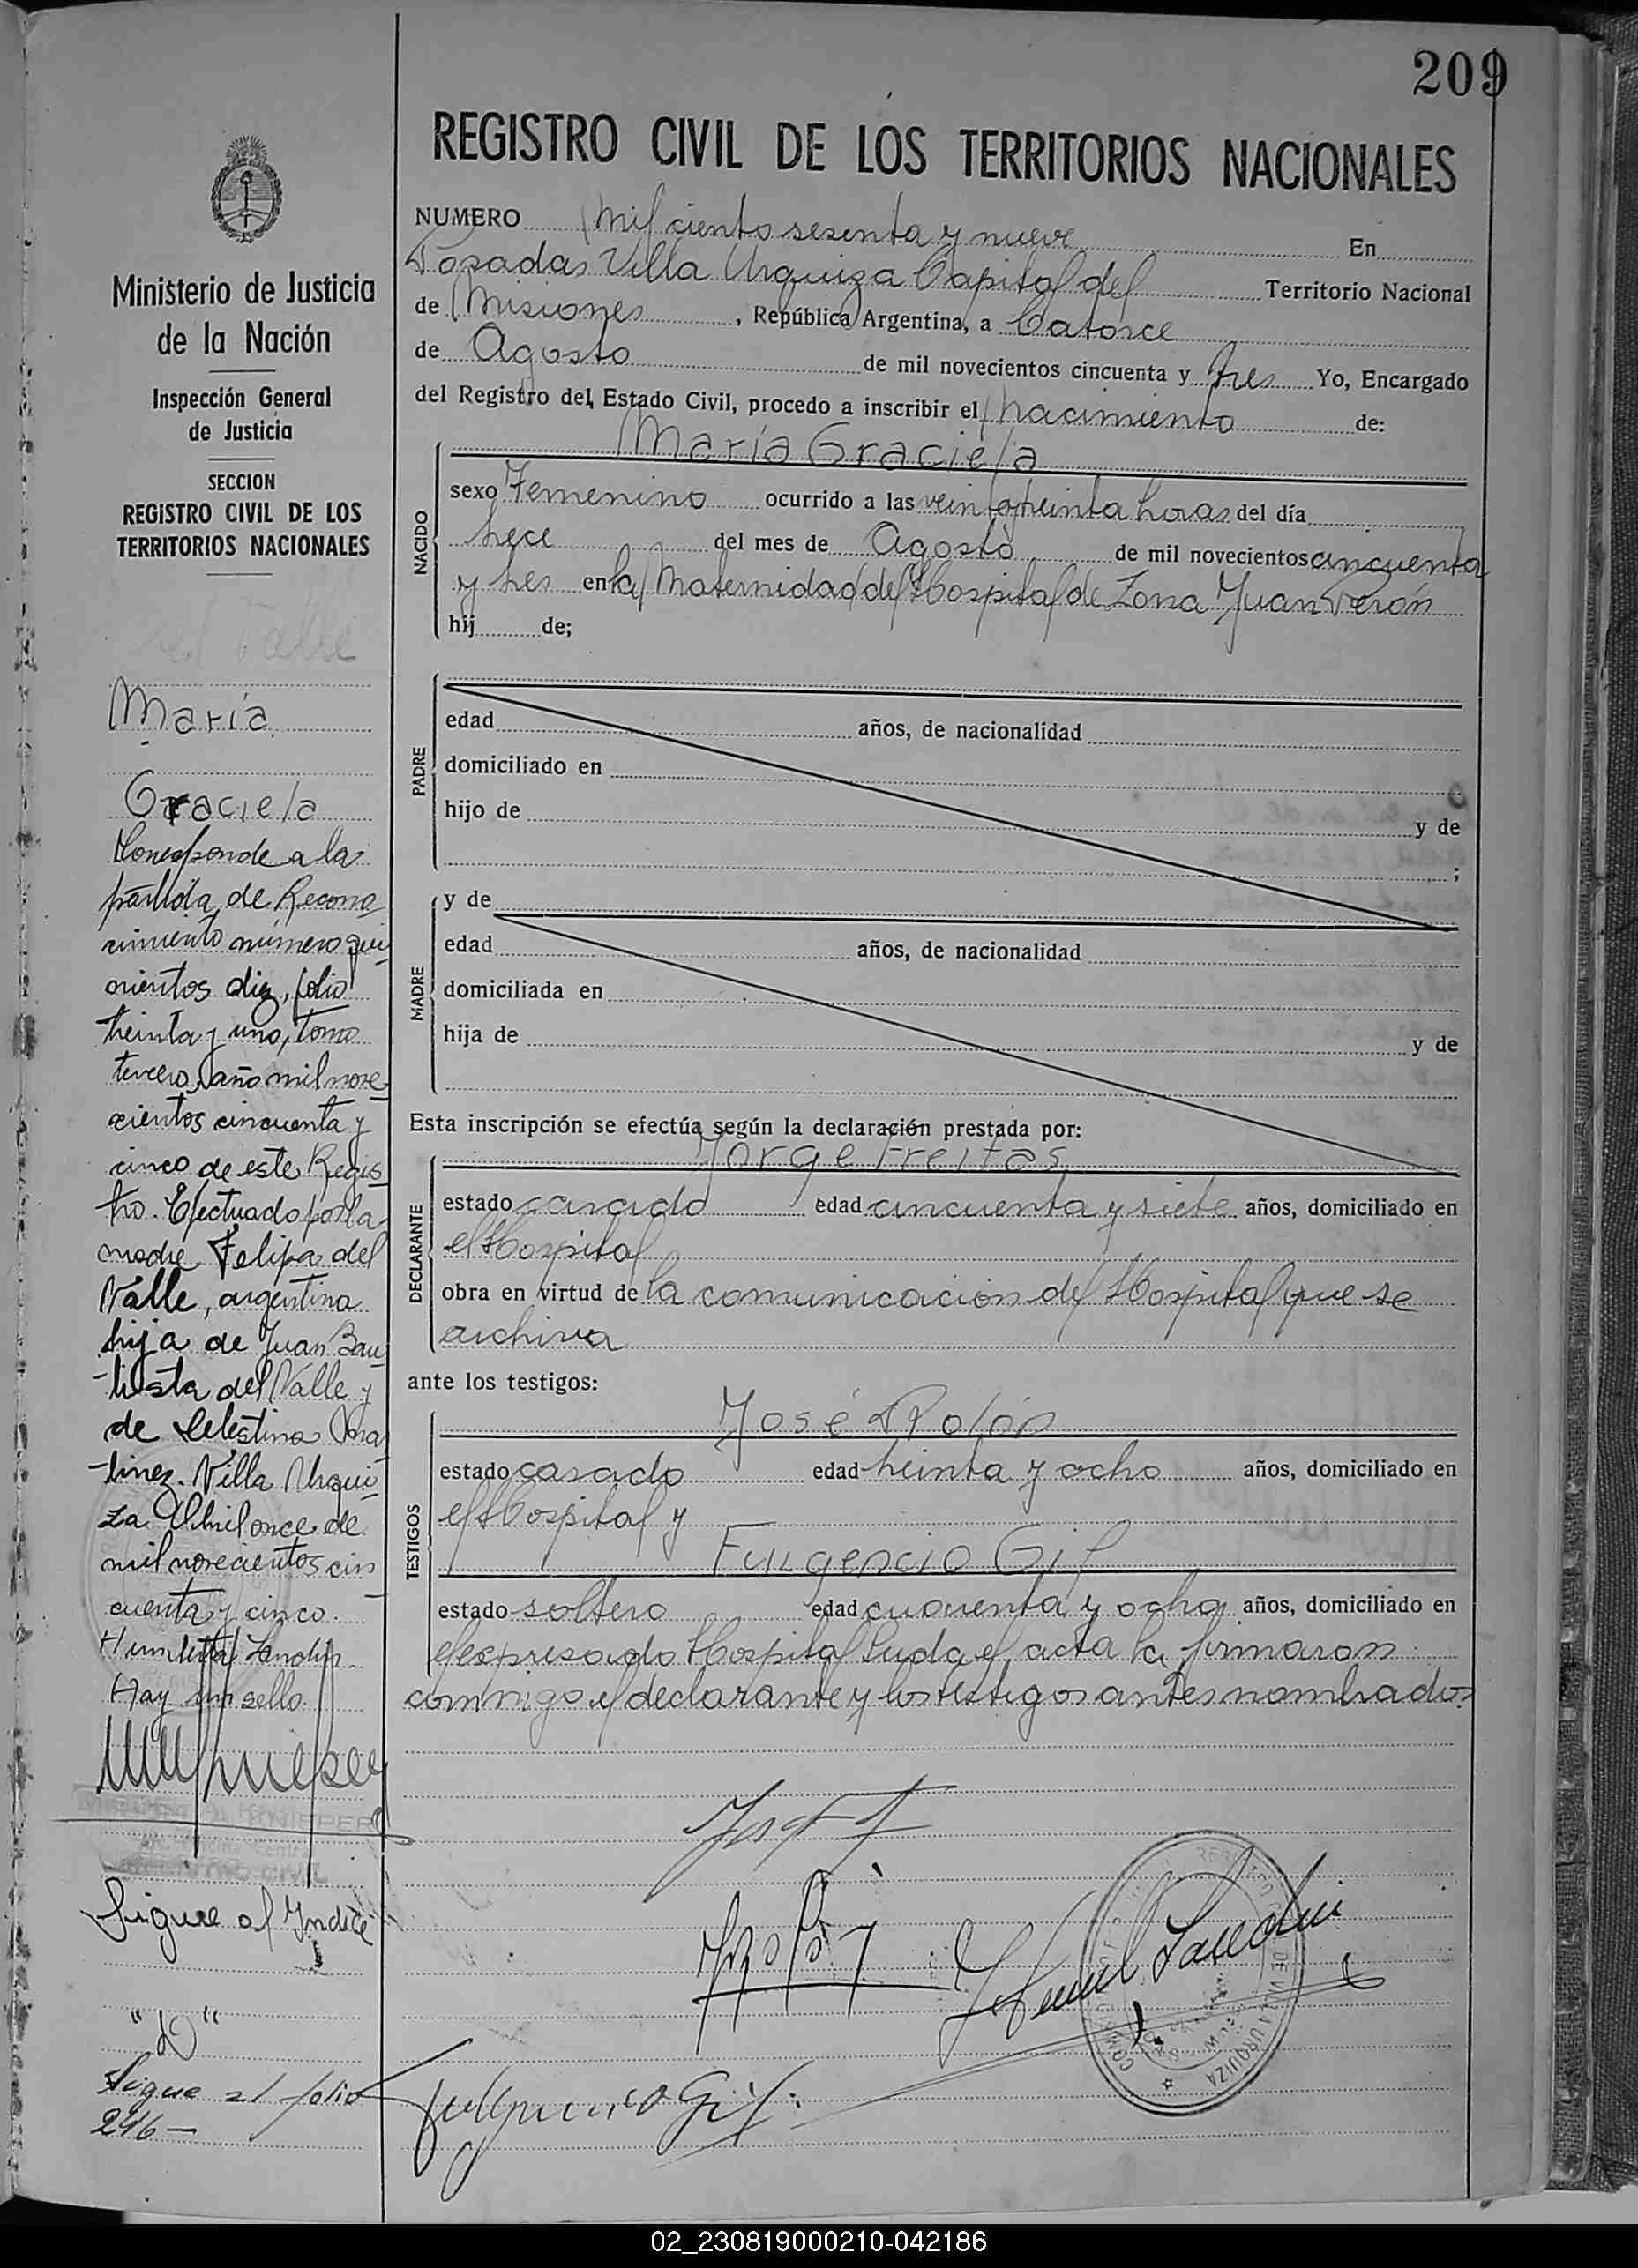 209
REGISTRO CIVIL DE LOS TERRITORIOS NACIONALES
NUMERO Mil ciento sesenta y nueve En
Posadas Villa Urquiza Capital del Territorio Nacional
de Misiones, República Argentina, a Catorce
de Agosto de mil novecientos cincuenta y tres Yo, Encargado
del Registro del Estado Civil, procedo a inscribir el nacimiento de:
María Graciela
NACIDO
sexo Femenino ocurrido a las veinte y treinta horas del día
trece del mes de Agosto de mil novecientos cincuenta
y tres en la Maternidad del Hospital de Zona Juan Perón
hij de;
PADRE
edad años, de nacionalidad
domiciliado en
hijo de y de
;
MADRE
y de
edad años, de nacionalidad
domiciliada en
hija de y de
Esta inscripción se efectúa según la declaración prestada por:
Jorge Freitas
DECLARANTE
estado casado edad cincuenta y siete años, domiciliado en
el Hospital
obra en virtud de la comunicacion del Hospital que se
archiva
ante los testigos:
José Rolón
TESTIGOS
estado casado edad treinta y ocho años, domiciliado en
el Hospital y
Fulgencio Gil
estado soltero edad cuarenta y ocho años, domiciliado en
el expresado Hospital Leida el acta la firmaron
conmigo el declarante y los testigos antes nombrados
Ministerio de Justicia
de la Nación
Inspección General
de Justicia
SECCION
REGISTRO CIVIL DE LOS
TERRITORIOS NACIONALES
del Valle
María
Graciela
Corresponde a la
partida de Recono
cimiento número qui
nientos diez, folio
treinta y uno, tomo
tercero, año mil nove
cientos cincuenta y
cinco de este Regis
tro. Efectuado por la
madre Felipa del
Valle, argentina
hija de Juan Bau
tista del Valle y
de Celestina Mar
tinez. Villa Urqui
za Abril once de
mil novecientos cin
cuenta y cinco.
Hay un sello.
REGISTRO CIVIL
Sigue al Indice
"D"
Sigue al folio
216 -
Fulgencio Gil
DE VILLA URQUIZA
02_230819000210-042186